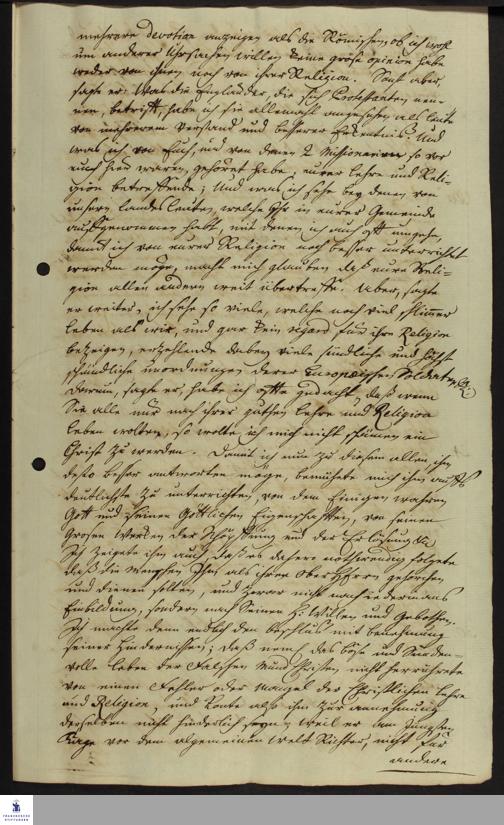 mehrere devotion anzeigen als die Römischen, ob ich wohl
um anderer Uhrsachen willen keine große opinion habe
weder von ihnen noch von ihrer Religion. Sonst aber,
sagte er: Was die Engländer, die sich Protestanten nen-
nen, betrifft, habe ich sie allemahl angesehen als Leute
von mehrerem Verstand und besserer Erkentnis. Und
was ich von Euch, und von denen 2 Missionarien so vor
euch hier waren, gehöret habe, eurer Lehre und Reli-
gion betreffende; Und was ich sehe bey denen von
unsern Landesleuten, welche Ihr in eurer Gemeinde
aufgenommen habt, mit denen ich auch oft umgehe,
damit ich von eurer Religion noch besser unterrichtet
werden möge, macht mich glauben daß eure Reli-
gion allen andern weit übertreffe. Aber, sagte
er weiter, ich sehe so viele, welche noch viel schlimmer
leben als wir, und gar kein regard für ihre Religion
bezeigen, erzehlende dabey viele sündliche und höchst
schändliche unordnungen derer Europæischen Soldaten &c.
Darum, sagte er, habe ich offte gedacht, daß wenn
Sie alle nur nach ihrer guthen Lehre und Religion
leben wolten, so wolte ich mich nicht schämen ein
Christ zu werden. Damit ich nun zu diesem allen, ihm
desto besser antworten möge, bemühete mich ihn aufs
deutlichste zu unterrichten, von dem Einigen wahren
Gott und seinen Göttlichen Eigenschafften, von seinen
Grosen Werken der Schöpffung und der Erlösung &c.
Ich zeigete ihm auch, daß es dahero nothwendig folgete
daß die Menschen Ihm als ihren Ober Herrn gehorchen
und dienen solten, und zwar nicht nach iedermans
Einbildung, sondern nach Seinem H. Willen und Gebothen.
Ich machte denn endlich den Beschluß mit benehmung
seiner Hindernisse; daß neml. das böse und Sünden-
volle Leben der Falschen Mund Christen nicht herrührete
von einen Fehler oder Mangel der Christlichen Lehre
und Religion, und konte also ihm zur annehmung
derselben nicht hinderlich seyn, weil er am Jüngsten
Tage vor dem algemeinen Welt Richter, nicht für
andere
FRANCKESCHE
STIFTUNGEN